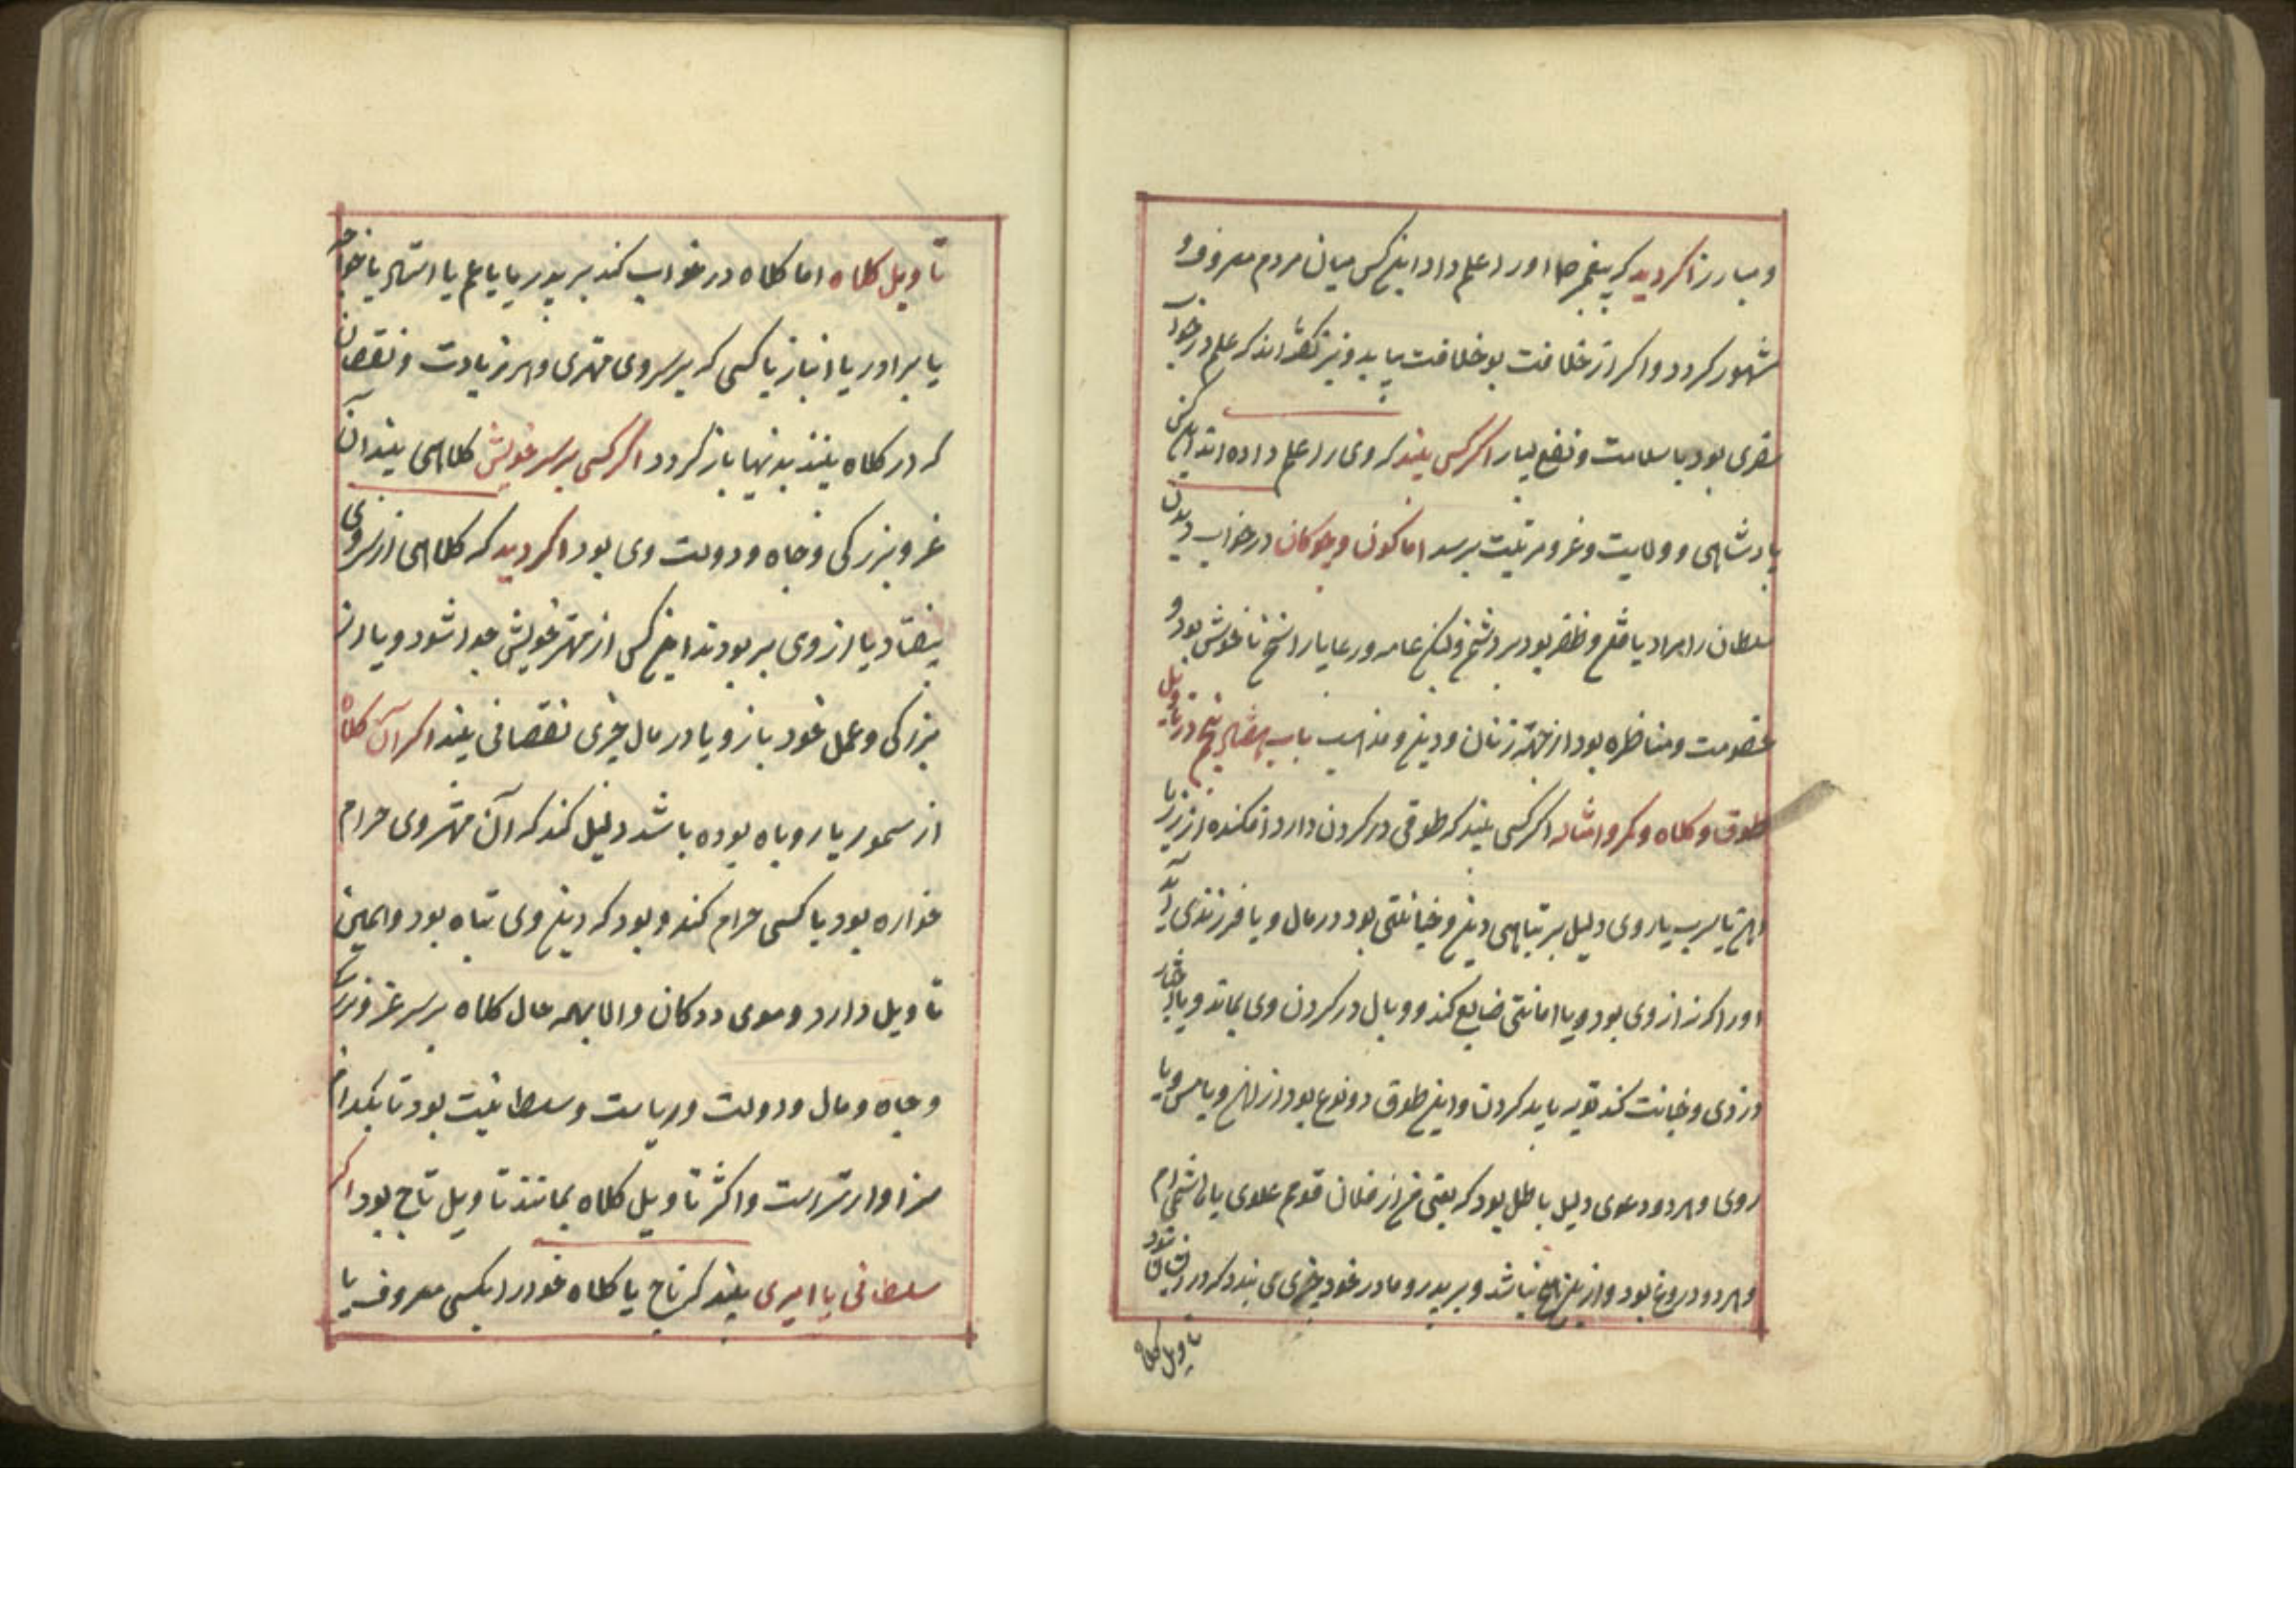 و مبارز اکر دید که پیغمبر صا اورا علم داد این کس میان مردم معروف و
مشهور کردد و اکر از خلافت بو خلافت یابد و نیز کفته‌اند که علم در خواب
سفری بود با سلامت و نفع بسیار اکر کس بیند که وی را علم داده‌اند این کس
پادشاهی و ولایت و عز و مرتبت برسد اما کوی و چوکان در خواب دیدن
سلطان را مراد یافتن و ظفر بود بر دشمن عامه و رعایا را سخن ناخوش بود و
خصومت و مناظره بود از جهة زنان و دین و مذهب باب پنج در تاویل
طوق و کلاه و کمر و امثاله اکر کسی بیند که طوقی در کردن دارد افکنده از زر یا
یا سرب یا روی دلیل بر تباهی دین و خیانتی بود در مال و یا فرزندی آید
اورا که نه از وی بود و یا امانتی ضایع کند و وبال در کردن وی بماند و یا
دزدی و خیانت کند توبه باید کردن و این طوق دو نوع بود از آهن و یا مس و یا
روی و هر دو دعوی دلیل باطل بود که یعنی من از فلان قومم علوی یا هاشمی‌ام
و هر دو دروغ بود و از این نباشد و بر پدر و مادر خود چیزی می بندد که در
تاویل کلاه
تاویل کلاه اما کلاه در خواب کند بر پدر یا یا عم یا استاد یا خواجه
یا برادر یا انباز یا کسی که بر سر وی مهتری و هر زیادت و نقصان
که در کلاه بیند بدینها باز کردد اکر کسی بر سر خویش کلاهی بیند آن
عز و بزرکی و جاه و دولت وی بود اکر دید که کلاهی از سر وی
بیفتاد یا از وی بربودند این کس از مهتر خویش جدا شود و یا از
بزرکی و عمل خود باز و یا در مال چیزی نقصانی بیند اکر آن کلاه
از سمور یا روباه بوده باشد دلیل کند که آن مهتر وی حرام
خواره بود یا کسی حرام کند و بود که دین وی تباه بود و همین
تاویل دارد و موی ددکان و الا بهمه حال کلاه بر سر عز و بزرکی
و جاه و مال و دولت و ریاست و سلطانیت بود تا بکدام
سزاوارتر است و اکثر تاویل کلاه بمانند تاویل تاج بود اکر
سلطانی یا امیری بیند که تاج یا کلاه خود را بکسی معروف یا